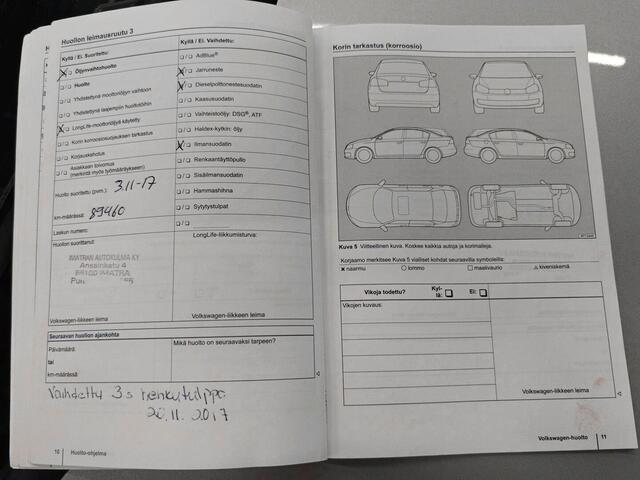 Huollon leimausruutu 3
Kyllä / Ei. Suoritettu:
Öljynvaihtohuolto
Huolto
Yhdistettynä moottoriöljyn vaihtoon
Yhdistettynä laajempiin huoltotöihin
LongLife-moottoriöljyä käytetty
Korin korroosiosuojauksen tarkastus
Korjauskehotus
Asiakkaan toivomus
(merkintä myös työmääräykseen)
Huolto suoritettu (pvm.) 3.11-17
km-määrässä: 89460
Laskun numero:
Huollon suorittanut:
IMATRAN AUTOKULMA KY
Anssinkatu 4
55100 IMATRA
Volkswagen-liikkeen leima
Kyllä / Ei. Vaihdettu:
AdBlue®
Jarruneste
Dieselpolttonestesuodatin
Kaasusuodatin
Vaihteistoöljy: DSG®, ATF
Haldex-kytkin: öljy
Ilmansuodatin
Renkaantäyttöpullo
Sisäilmansuodatin
Hammashihna
Sytytystulpat
LongLife-liikkumisturva:
Volkswagen-liikkeen leima
Seuraavan huollon ajankohta
Päivämäärä:
tai
km-määrässä:
Mikä huolto on seuraavaksi tarpeen?
Vaihdettu 3:s henkutulppa
20.11.2017
10 Huolto-ohjelma
Korin tarkastus (korroosio)
Kuva 5 Viitteellinen kuva. Koskee kaikkia autoja ja korimalleja.
Korjaamo merkitsee Kuva 5 vialliset kohdat seuraavilla symboleilla:
x naarmu ○ lommo □ maalivaurio △ kiveniskemä
Vikoja todettu? Kyl-
lä: Ei:
Vikojen kuvaus:
Volkswagen-liikkeen leima
Volkswagen-huolto 11